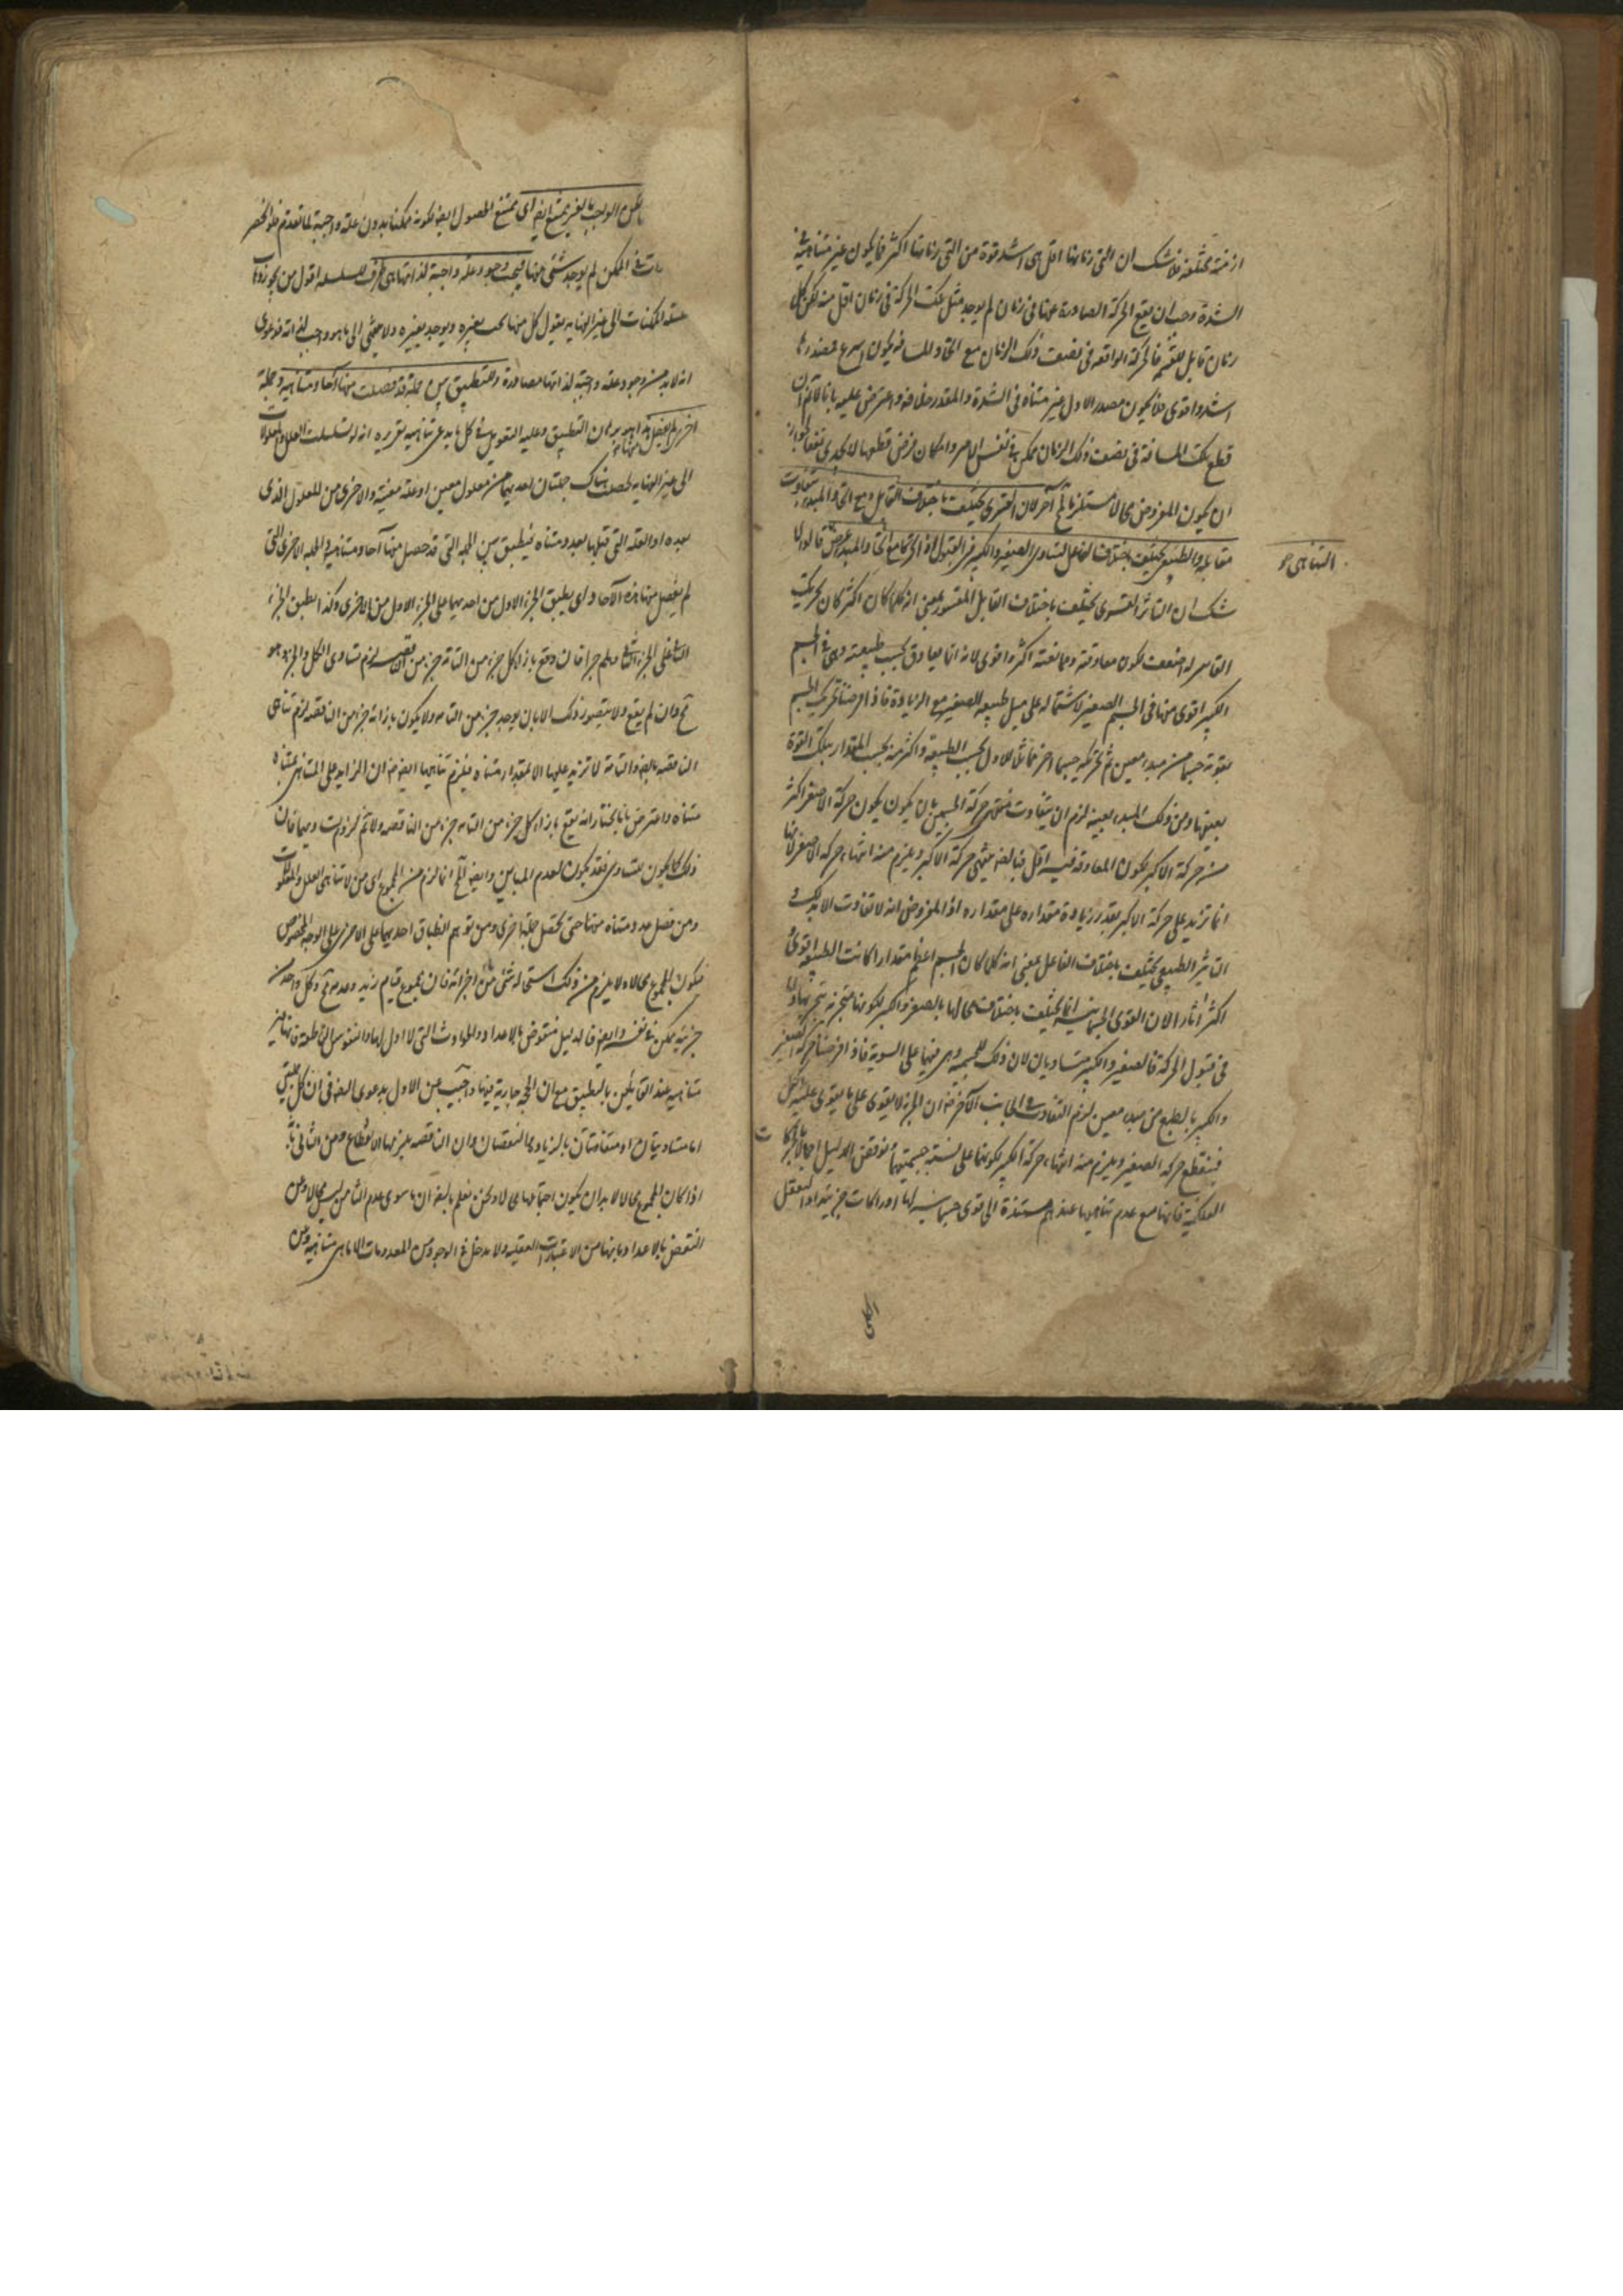 ازمنة مختلفة فلا شك ان التى زمانها اقل هى اشد قوة من التى زمانها اكثر فما يكون غير متناهية فى
الشدة وجب ان يقع الحركة الصادرة عنها فى زمان لم يوجد مثل تلك الحركة فى زمان اقل منه لكن كل
زمان قابل للقسمة فالحركة الواقعة فى نصف ذلك الزمان مع اتحاد المسافة يكون اسرع فمصدرها
اشد واقوى فلا يكون مصدر الاول غير متناه فى الشدة والمقدر خلافه واعترض عليه بانا لا نم ان
قطع تلك المسافة فى نصف ذلك الزمان ممكن فى نفس الامر وامكان فرض قطعها لا يجدى نفعا لجواز
ان يكون المفروض محالا مستلزما لمح آخر لان القسرى يختلف باختلاف القابل ومع اتحاد المبدء يتفاوت
مقابله والطبيعى يختلف باختلاف الفاعل لتساوى الصغير والكبير فى القبول فاذا تحركا مع اتحاد المبدء عرض قالوا لا
التناهى
شك ان التاثير القسرى يختلف باختلاف القابل المقسور بمعنى انه كلما كان اكثر كان تحريك
القاسر له اضعف لكون معاوقته وممانعته اكثر واقوى لانه انما يعاوق بحسب طبيعته وهى فى الجسم
الكبير اقوى منها فى الجسم الصغير لاشتماله على مثل طبيعة الصغير مع الزيادة فاذا فرضنا تحريك الجسم
بقوته جسما من مبدء معين ثم تحريكه جسما اخر مماثلا للاول بحسب الطبيعة واكثر منه بحسب المقدار بتلك القوة
بعينها ومن ذلك المبدء بعينه لزم ان يتفاوت منتهى حركة الجسمين بان يكون حركة الاصغر اكثر
من حركة الاكبر لكون المعاوقة فيه اقل فبالضرورة ينتهى حركة الاكبر ويلزم منه انتهاء حركة الاصغر لانها
انما تزيد على حركة الاكبر بقدر زيادة مقداره على مقداره اذ المفروض انه لا تفاوت الا بذلك و
التاثير الطبيعى يختلف باختلاف الفاعل بمعنى انه كلما كان الجسم اعظم مقدارا كانت الطبيعة اقوى و
اكثر اثارا لان القوى الجسمانية انما تختلف باختلاف محالها بالصغر والكبر لكونها متجزية بتجزيها واما
فى قبول الحركة فالصغير والكبير متساويان لان ذلك للجسمية وهى فيهما على السوية فاذا فرضنا حركة الصغير
والكبير بالطبع من مبدء معين لزم التفاوت فى الجانب الآخر ضرورة ان الجزء لا يقوى على ما يقوى عليه الكل
فينقطع حركة الصغير ويلزم منه انتهاء حركة الكبير لكونها على نسبة جسميتهما ونوقض الدليل اجمالا بالحركات
الفلكية فانها مع عدم تناهيها عندهم مستندة الى قوى جسمانية لها ادراكات جزئية اذ التعقل
الكلى
لكن الواجب بالغير يمتنع ايضا اى يمتنع الحصول ايضا لكونه ممكنا بدون علة واجبة لما تقدم فلو انحصر
فى الممكن لم يوجد شئ منها فيجب وجود علة واجبة لذاتها هى طرف السلسلة اقول من يجوز ذهاب
سلسلة الممكنات الى غير النهاية يقول كل منها يجب بغيره ويوجد بغيره ولا ينتهى الى ما هو واجب لذاته فدعوى
انه لابد من وجود علة واجبة لذاتها مصادرة وللتطبيق بين جملة قد فصلت منها آحاد متناهية وجملة
اخرى لم يفصل منها هذا هو برهان التطبيق وعليه التعويل فى كل ما يدعى تناهيه تقريره انه لو تسلسلت العلل والمعلولات
الى غير النهاية لحصلت هناك جملتان احديهما من معلول معين او علة معينة والاخرى من المعلول الذى
بعده او العلة التى قبلها بعدد متناه فيطبق بين الجملة التى قد حصل منها آحاد متناهية والجملة الاخرى التى
لم يفصل منها هذه الآحاد اى يطبق الجزء الاول من احديهما على الجزء الاول من الاخرى وكذا يطبق الجزء
الثانى على الجزء الثانى وهلم جرا فان وقع بازاء كل جزء من التامة جزء من الناقصة لزم تساوى الكل والجزء وهو
مح وان لم يقع ولا يتصور ذلك الا بان يوجد جزء من التامة ولا يكون بازائه جزء من الناقصة لزم تناهى
الناقصة بالضرورة والتامة لا تزيد عليها الا بمقدار متناه فيلزم تناهيها ايضا ضرورة ان الزايد على المتناهى بمتناه
متناه واعترض بانا نختار انه يقع بازاء كل جزء من التامة جزء من الناقصة ولا نم لزوم تساويهما فان
ذلك كما يكون للتساوى فقد يكون لعدم التناهى وايضا المح انما لزم من المجموع اى من لا تناهى العلل والمعلولات
ومن فصل عدد متناه منها حتى يحصل جملة اخرى ومن توهم انطباق احديهما على الاخرى على الوجه المخصوص
فيكون المجموع محالا ولا يلزم من ذلك استحالة شئ من اجزائه فان مجموع قيام زيد وعدمه مح وكل واحد من
جزئيه ممكن فى نفسه وايضا فالدليل منقوض بالاعداد والحوادث التى لا اول لها والنفوس الناطقة فانها غير
متناهية عند القائلين بالتطبيق مع ان الحجة جارية فيها واجيب عن الاول بدعوى الضرورة فى ان كل جملتين
اما متساويتان او متفاوتتان بالزيادة والنقصان وان الناقصة يلزمها الانقطاع وعن الثانى بانه
اذا كان المجموع محالا لابد ان يكون احتمالها محالا ونحن نعلم بالضرورة ان ما سوى عدم التناهى ليس بمحال وعن
النقض بالاعداد بانها من الاعتبارات العقلية ولا يدخل فى الوجود من المعدودات الا ما هى متناهية وعن